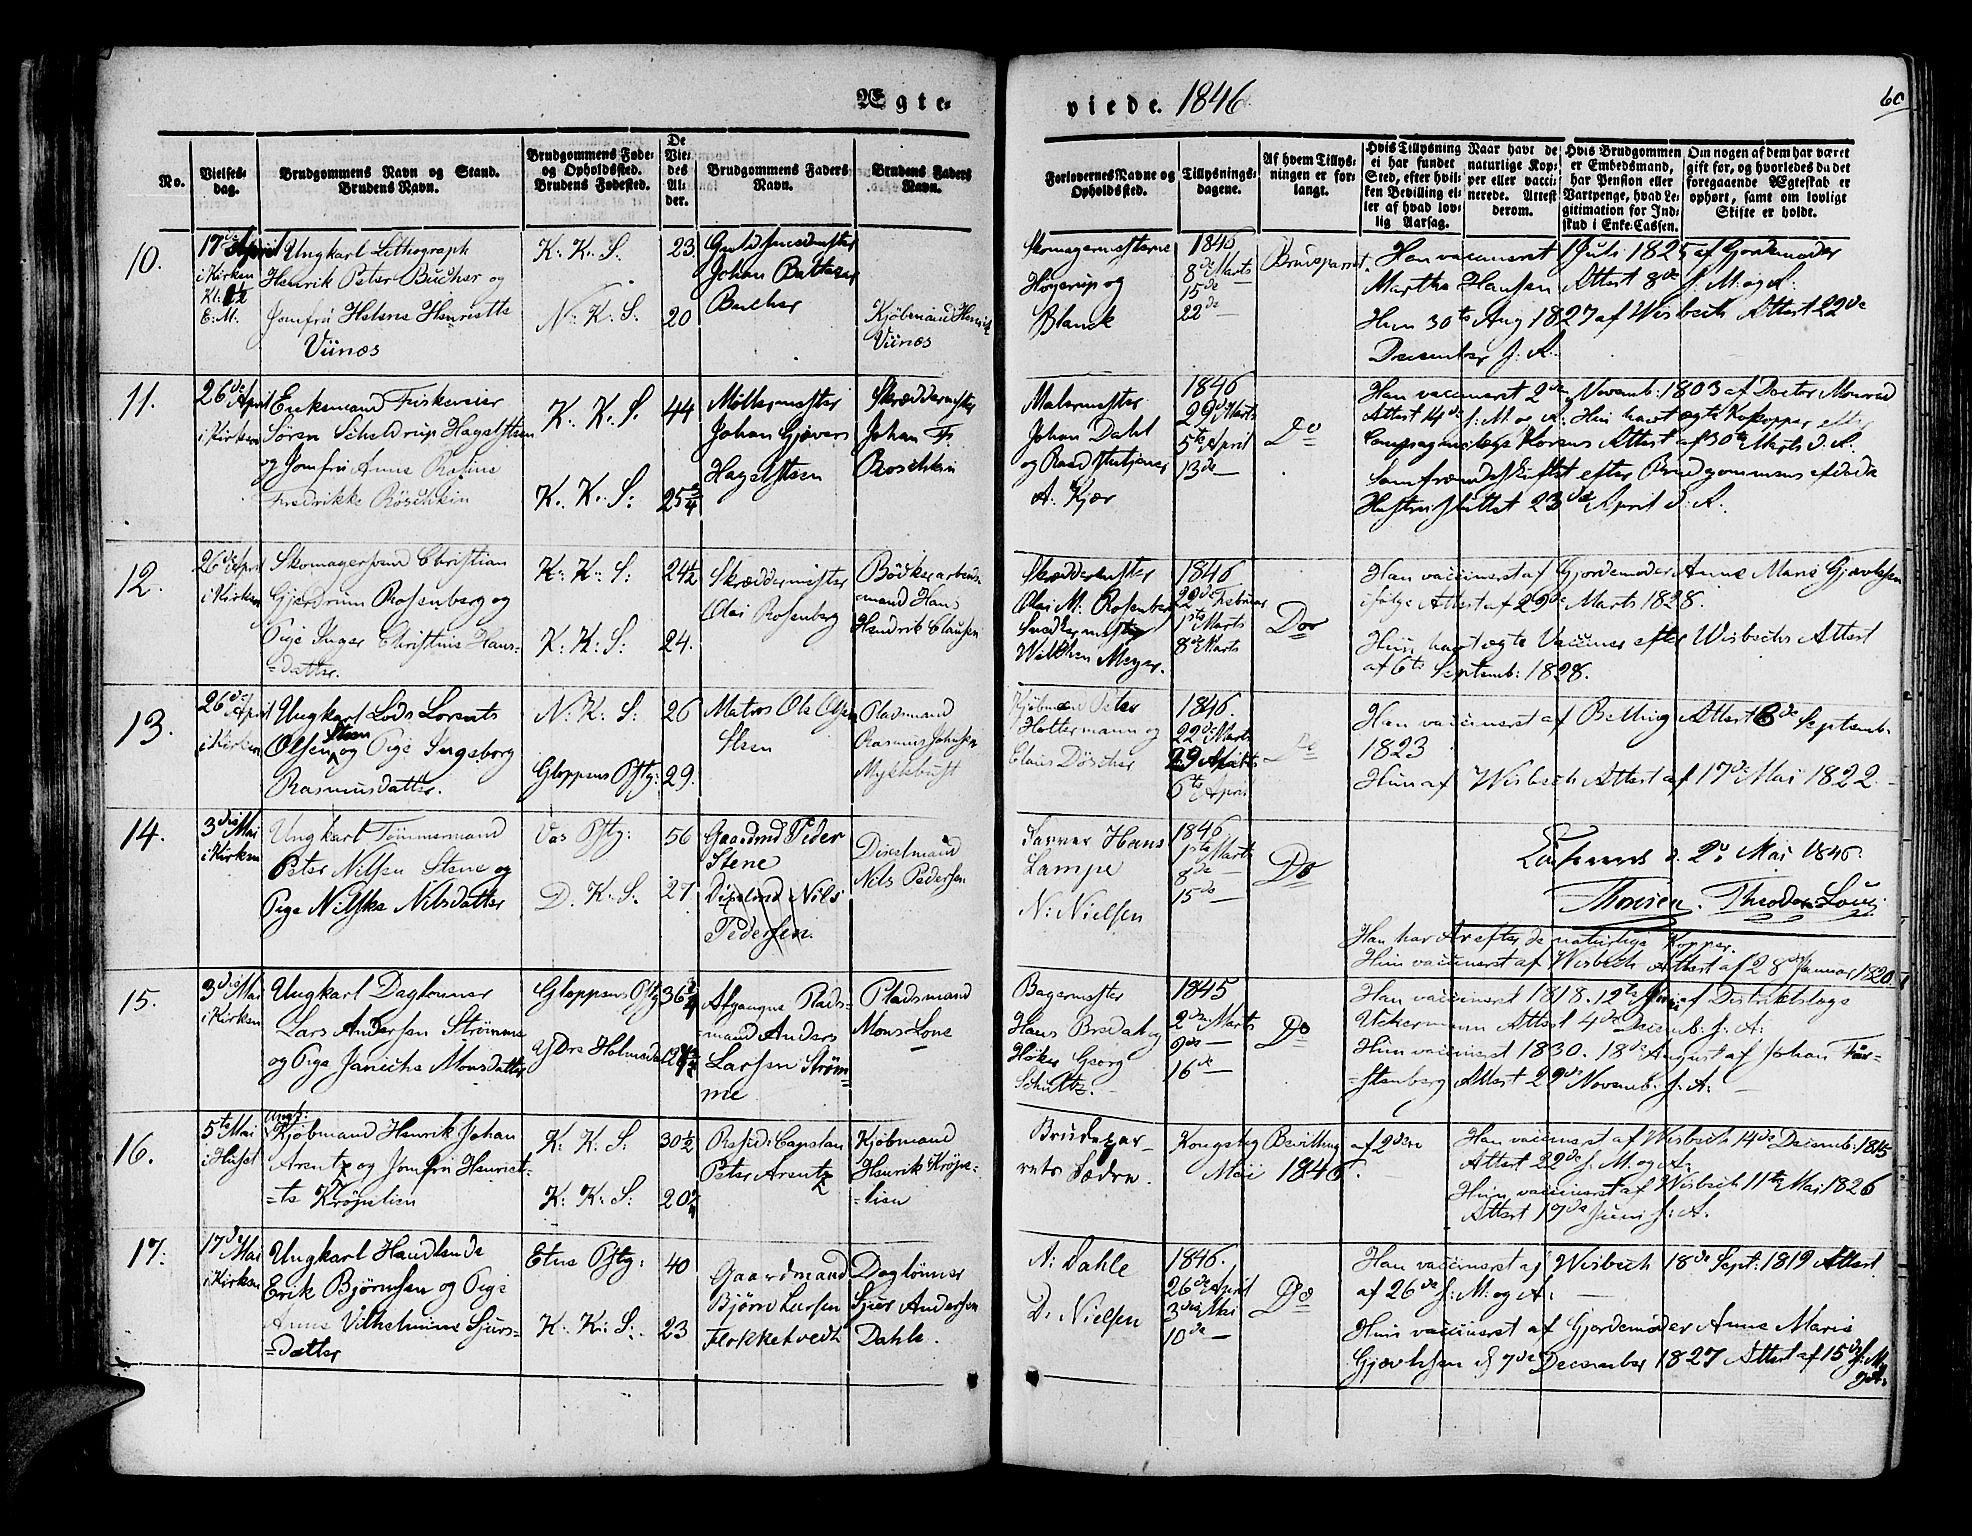 Ægte-
viede. 1846
60
No.
Vielses-
dag.
Brudgommens Navn og Stand.
Brudens Navn.
Brudgommens Føde-
og Opholdssted.
Brudens Fødested.
De
Vie-
des
Al-
der.
Brudgommens Faders
Navn.
Brudens Faders
Navn.
Forlovernes Navne og
Opholdssted.
Tillysnings-
dagene.
Af hvem Tillys-
ningen er for-
langt.
Hvis Tillysning
ei har fundet
Sted, efter hvil-
ken Bevilling el-
ler af hvad lov-
lig Aarsag.
Naar havt de
naturlige Kop-
per eller vacci-
nerede. Attest
derom.
Hvis Brudgommen
er Embedsmand,
har Pension eller
Vartpenge, hvad Le-
gitimation for Ind-
skud i Enke-Cassen.
Om nogen af dem har været
gift før, og hvorledes da det
foregaaende Ægteskab er
ophørt, samt om lovligt
Skifte er holdt.
10.
17de April
i Kirken
Kl. 1½
E: M:
Ungkarl Lithograph
Henrik Peter Bucher og
Jomfru Helene Henriette
Viinæs
K: K: S:
N: K: S:
23.
20
Guldsmedmester
Johan Baltazar
Bucher
Kjøbmand Henrik
Viinæs
Skomagermesterne
Høyerup og
Blanck
1846
8de Marts
15de
22de
Brudeparret.
Han vaccineret 1 Juli 1825 af Gjordemoder
Martha Hansen Attest 8de f. M. og A.
Hun 30te Aug 1827 af Wisbech Attest 22de
Decembr f. A.
11.
26de April
i Kirken
Enkemand Fiskeveier
Søren Scheldrup Hagelsteen
og Jomfru Anne Rosine
Fredrikke Röschkin
K. K. S.
K. K. S:
44
25¾
Møllermester
Johan Gjøvers
Hagelsteen
Skræddermester
Johan Fr.
Roschkin
Malermester
Johan Dahl
og Raadstutjener
A. Kjær
1846
29de Marts
5te April
13de
Do
Han vaccineret 2de Novemb: 1803 af Doctor Monrad
Attest 4de f. M. og A: Hun havt ægte Kokopper efter
Attest af 30te Marts d. A.
Samfrændeskiftet efter Brudgommens afdøde
Hustru sluttet 23de April d. A.
12.
26de April
i Kirken
Skomagersvend Christian
Gjerdrum Rosenberg og
Pige Inger Christine Hans-
=datter.
K: K: S:
K: K: S:
24½
24.
Skræddermester
Olai Rosenberg
Bødkerarbeids-
=mand Hans
Hendrik Clausen
Skræddermester
Olai M. Rosenberg
Snedkermester
Wilchen Meyer.
1846
22de Februar
1ste Marts
8de Marts
Do
Han vaccineret af Gjordemoder Anne Marie Gjævlesen
ifølge Attest af 29de Marts 1828.
Hun havt ægte Vacciner efter Wisbechs Attest
af 6te Septemb: 1828.
13.
26de April
i Kirken
Ungkarl Lods Lorents
Olsen Steen og Pige Ingeborg
Rasmusdatter.
N: K: S:
Gloppens Pstg:
26
29.
Matros Ole Olsen
Steen
Pladsmand
Rasmus Johnsen
Myklebust
Kjøbmænd Peter
Holtermann og
Claus Döscher
1846.
22de Marts
29 Marts
5te April
Do
Han vaccineret af Belling Attest 6de Septemb.
1823
Hun af Wisbech Attest af 17de Mai 1822.
14.
3die Mai
i Kirken
Ungkarl Tömmermand
Peter Nilsen Stene og
Pige Nilska Nilsdatter
Vos Pstg:
D. K. S.
56
27.
Gaardmd Peder
Stene
Nils
Pedersen.
Nils Pedersen
Farver Hans
Lampe
N: Nielsen
1846.
1ste Marts
8de
15de
Do
d. 2. Mai 1846.
Han har Ar efter de naturlige Kopper.
Hun vaccineret af Wisbech Attest af 28de Januar 1820.
15.
3die Mai
i Kirken
Ungkarl Daglønner
Lars Andersen Strømme
og Pige Janicha Monsdatter
Gloppens Pstg
Ydre Holmedal
36¾
Afgangne Plads-
mand Anders
Larsen Strøm-
me
Pladsmand
Mons Lone
Bagermester
Hans Bredal og
Høker Georg
Schultz.
1845
2den Marts
9de
16de
Do
Han vaccineret 1818. 12te Juni af Distriktslæge
Uckermann Attest 4de Decemb: f: A:
Hun vaccineret 1830. 18de August af Johan Før-
=stenberg Attest 29de Novemb: f: A:
16.
5te Mai
i Huset
Ungk:
Kjøbmand Henrik Johan
Arentz og Jomfru Henriet-
=te Krøpelien
K: K: S:
K: K: S:
30½
20¾
Resid: Capelan
Peter Arentz
Kjøbmand
Henrik Krøpe-
=lien
Brudepar-
rets Fædre.
Kongelig Bevilling af 2den
Mai 1846.
Han vaccineret af Wisbech 14de Decemb: 1815
Attest 22de f. M. og A:
Hun vaccineret af Wisbech 11te Mai 1826
Attest 19de Juni f: A:
17.
17de Mai
i Kirken
Ungkarl Handlende
Erik Bjørnsen og Pige
Anne Vilhelmine Sjurs-
=datter
Etne Pstg:
K: K: S:
40
23
Gaardmand
Bjørn Larsen
Flokketvedt
Daglønner
Sjur Andersen
Dahle.
A: Dahle
D: Nielsen
1846.
26de April
3die Mai
10de
Do
Han vaccineret af Wisbech 18de Sept: 1819 Attest
af 26de f: M: og A:
Hun vaccineret af Gjordemoder Anne Marie
Gjævlesen d 9de December 1827 Attest af 15de f: M:
og A: